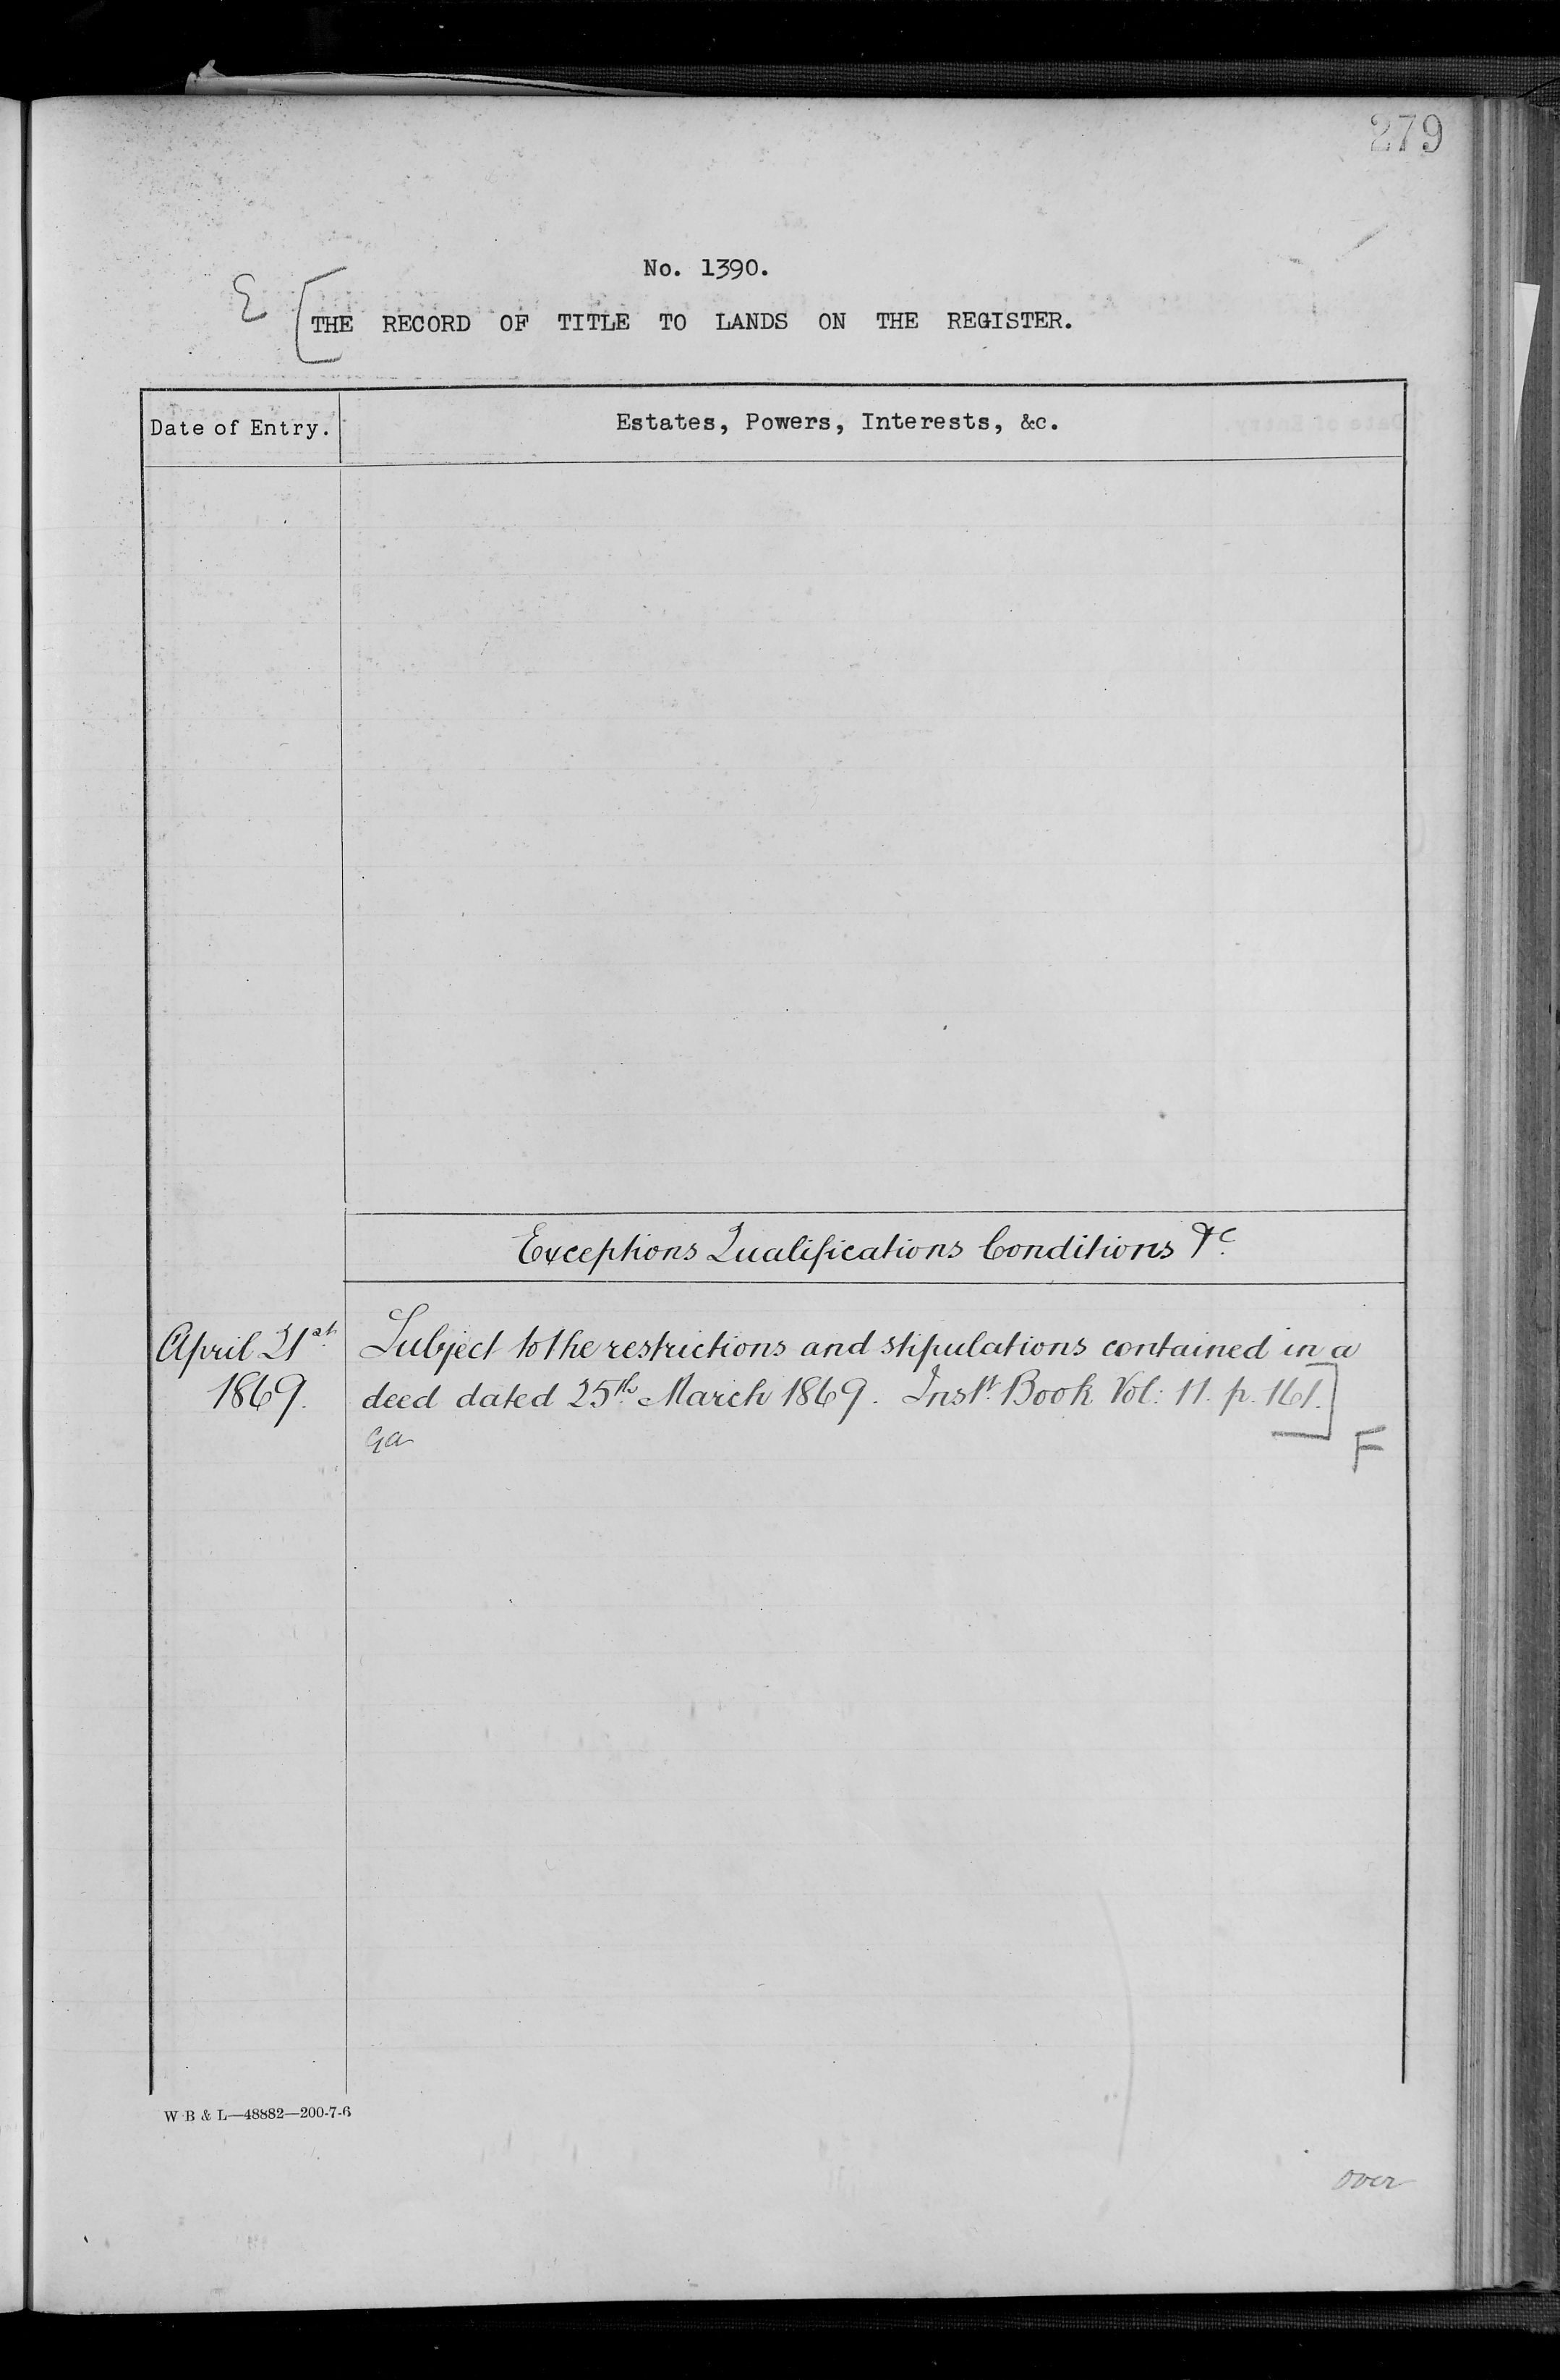 279
No. 1390.
E [THE RECORD OF TITLE TO LANDS ON THE REGISTER.
Date of Entry.
Estates, Powers, Interests, &c.
Exceptions Qualifications Conditions &c.
April 21st
1869.
Subject to the restrictions and stipulations contained in a
deed dated 25th March 1869. Inst. Book Vol: 11. p. 161.]
F
W B & L—48882—200-7-6
over